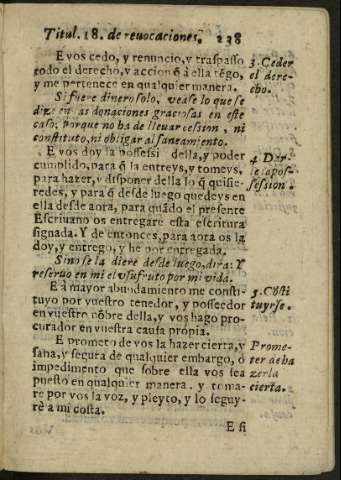 Titul. 18. de reuocaciones. 238
E vos cedo, y renuncio, y traspasso
todo el derecho, y accion q̃ à ella tẽgo,
y me pertenece en qualquier manera.
3. Ceder
el dere-
cho.
Si fuere dinero solo, vease lo que se
dize en las donaciones graciosas en este
caso, porque no ha de lleuar cesion, ni
constituto, ni obligar al saneamiento.
E vos doy la possessiõ della, y poder
cumplido, para q̃ la entreys, y tomeys,
para hazer, y disponer della lo q̃ quisie-
redes, y para q̃ desde luego quedeys en
ella desde aora, para quãdo el presente
Escriuano os entregare esta escritura
signada. Y de entonces, para aora os la
doy, y entrego, y he por entregada.
4. Dar
le apos-
session.
Si no se la diere desde luego, dira: Y
reseruo en mi el vsufruto por mi vida.
E à mayor abundamiento me consti-
tuyo por vuestro tenedor, y posseedor
en vuestro nõbre della, y vos hago pro-
curador en vuestra causa propia.
5. Cõsti
tuyrse.
E prometo de vos la hazer cierta, y
sana, y segura de qualquier embargo, ò
impedimento que sobre ella vos sea
puesto en qualquier manera, y toma-
re por vos la voz, y pleyto, y lo seguy-
rè a mi costa.
Prome-
ter de ha
zerla
cierta.
E si